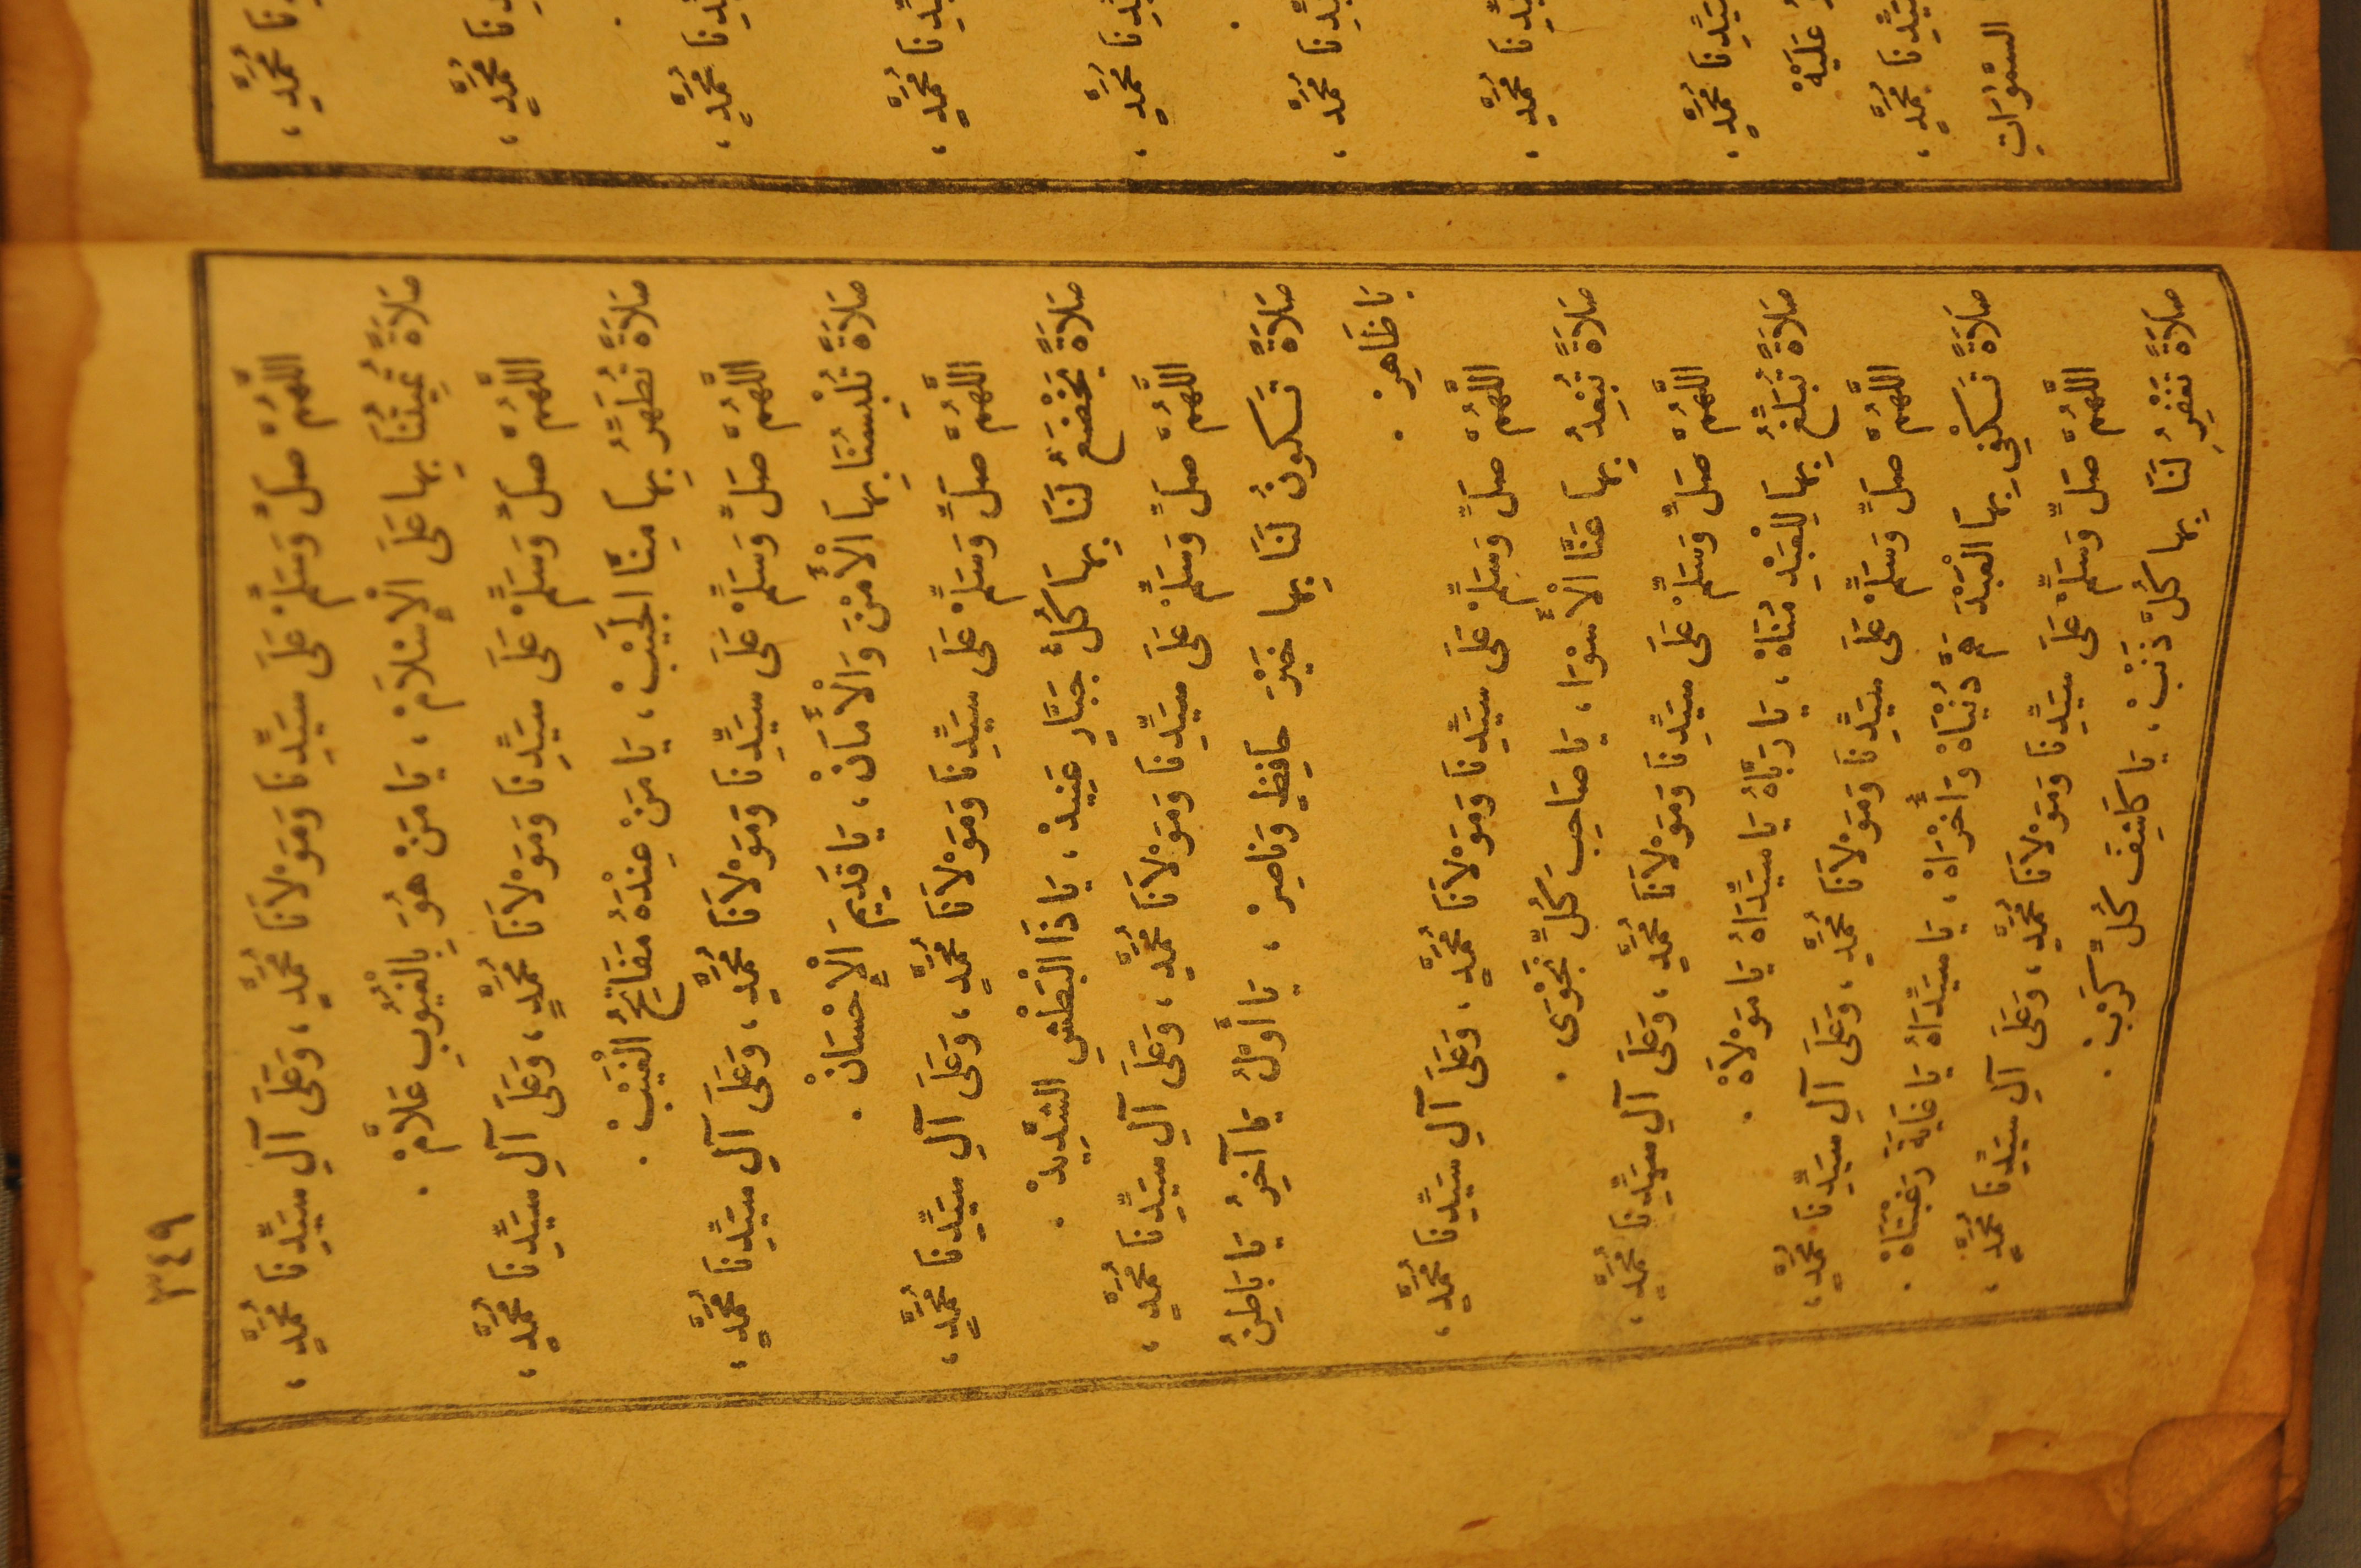 ٣٤٩
اللَّهُمَّ صَلِّ وَسَلِّمْ عَلَى سَيِّدِنَا وَمَوْلَانَا مُحَمَّدٍ، وَعَلَى آلِ سَيِّدِنَا مُحَمَّدٍ،
صَلَاةً تُمِيتُنَا بِهَا عَلَى الْإِسْلَامْ، يَا مَنْ هُوَ بِالْغُيُوبِ عَلَّامْ.
اللَّهُمَّ صَلِّ وَسَلِّمْ عَلَى سَيِّدِنَا وَمَوْلَانَا مُحَمَّدٍ، وَعَلَى آلِ سَيِّدِنَا مُحَمَّدٍ،
صَلَاةً تُطَهِّرُ بِهَا مِنَّا الْجَيْبْ، يَا مَنْ عِنْدَهُ مَفَاتِحُ الْغَيْبْ.
اللَّهُمَّ صَلِّ وَسَلِّمْ عَلَى سَيِّدِنَا وَمَوْلَانَا مُحَمَّدٍ، وَعَلَى آلِ سَيِّدِنَا مُحَمَّدٍ،
صَلَاةً تُلْبِسُنَا بِهَا الْأَمْنَ وَالْأَمَانْ، يَا قَدِيمَ الْإِحْسَانْ.
اللَّهُمَّ صَلِّ وَسَلِّمْ عَلَى سَيِّدِنَا وَمَوْلَانَا مُحَمَّدٍ، وَعَلَى آلِ سَيِّدِنَا مُحَمَّدٍ،
صَلَاةً يَخْضَعُ لَنَا بِهَا كُلُّ جَبَّارٍ عَنِيدْ، يَا ذَا الْبَطْشِ الشَّدِيدْ.
اللَّهُمَّ صَلِّ وَسَلِّمْ عَلَى سَيِّدِنَا وَمَوْلَانَا مُحَمَّدٍ، وَعَلَى آلِ سَيِّدِنَا مُحَمَّدٍ،
صَلَاةً تَكُونُ لَنَا بِهَا خَيْرَ حَافِظٍ وَنَاصِرْ، يَا أَوَّلُ يَا آخِرُ يَا بَاطِنُ
يَا ظَاهِرْ.
اللَّهُمَّ صَلِّ وَسَلِّمْ عَلَى سَيِّدِنَا وَمَوْلَانَا مُحَمَّدٍ، وَعَلَى آلِ سَيِّدِنَا مُحَمَّدٍ،
صَلَاةً تُبْعِدُ بِهَا عَنَّا الْأَسْوَا، يَا صَاحِبَ كُلِّ نَجْوَى.
اللَّهُمَّ صَلِّ وَسَلِّمْ عَلَى سَيِّدِنَا وَمَوْلَانَا مُحَمَّدٍ، وَعَلَى آلِ سَيِّدِنَا مُحَمَّدٍ،
صَلَاةً تُبَلِّغُ بِهَا لِلْعَبْدِ مُنَاهْ، يَا رَبَّاهُ يَا سَيِّدَاهُ يَا مَوْلَاهْ.
اللَّهُمَّ صَلِّ وَسَلِّمْ عَلَى سَيِّدِنَا وَمَوْلَانَا مُحَمَّدٍ، وَعَلَى آلِ سَيِّدِنَا مُحَمَّدٍ،
صَلَاةً تَكْفِي بِهَا الْعَبْدَ هَمَّ دُنْيَاهْ وَأُخْرَاهْ، يَا سَيِّدَاهُ يَا غَايَةَ رَغْبَتَاهْ.
اللَّهُمَّ صَلِّ وَسَلِّمْ عَلَى سَيِّدِنَا وَمَوْلَانَا مُحَمَّدٍ، وَعَلَى آلِ سَيِّدِنَا مُحَمَّدٍ،
صَلَاةً تَغْفِرُ لَنَا بِهَا كُلَّ ذَنْبْ، يَا كَاشِفَ كُلِّ كَرْبْ.
نَا مُحَمَّدٍ،
نَا مُحَمَّدٍ،
دِنَا مُحَمَّدٍ،
يِّدِنَا مُحَمَّدٍ،
يِّدِنَا مُحَمَّدٍ،
يِّدِنَا مُحَمَّدٍ،
يِّدِنَا مُحَمَّدٍ،
سَيِّدِنَا مُحَمَّدٍ،
عَلَيْهْ
سَيِّدِنَا مُحَمَّدٍ،
السَّمٰوَاتِ